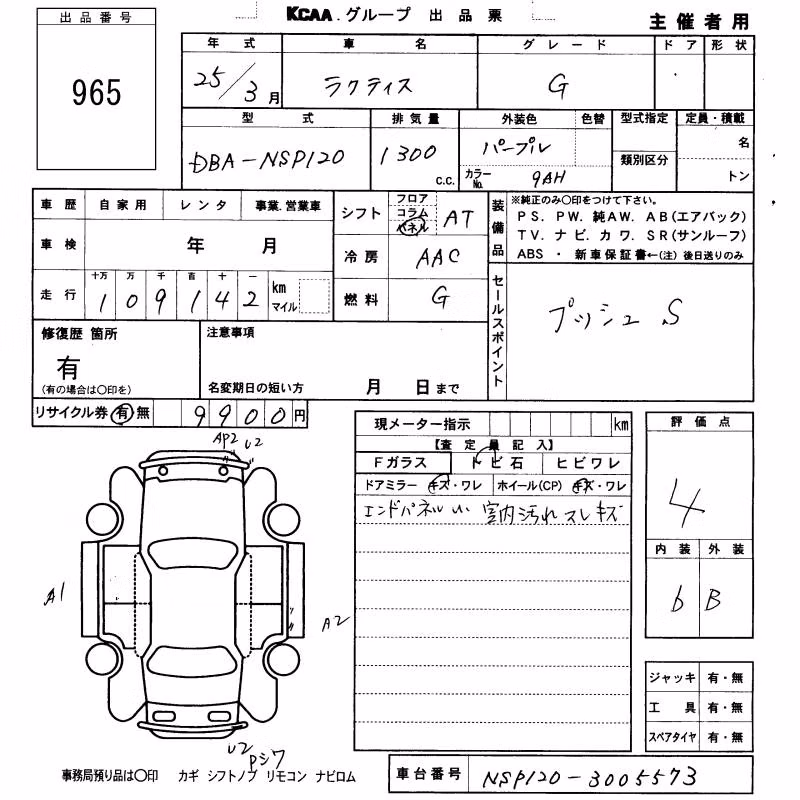 KCAA. グループ 出品票
主催者用
出品番号
965
年式 車名 グレード ドア 形状
25/3月 ラクティス G
型式 排気量 外装色 色替 型式指定 定員・積載
DBA-NSP120 1300 c.c. パープル 名
カラーNo. 9AH 類別区分 トン
車歴 自家用 レンタ 事業.営業車
車検 年 月
十万 万 千 百 十 一
走行 109142 km マイル
シフト フロア コラム パネル AT
冷房 AAC
燃料 G
装備品
※純正のみ〇印をつけて下さい。
PS. PW. 純AW. AB(エアバック)
TV. ナビ. カワ. SR(サンルーフ)
ABS ・ 新車保証書←(注)後日送りのみ
セールスポイント
プッシュ S
修復歴 箇所
有
(有の場合は〇印を)
注意事項
名変期日の短い方 月 日まで
リサイクル券 有 無 9900円
AP2 U2
A1
A2
U2
Pシワ
現メーター指示 km
【査定員記入】
Fガラス トビ石 ヒビワレ
ドアミラー キズ・ワレ ホイール(CP) キズ・ワレ
エンドパネルU1 室内汚れ スレ キズ
評価点
4
内装 外装
b B
ジャッキ 有・無
工具 有・無
スペアタイヤ 有・無
事務局預り品は〇印 カギ シフトノブ リモコン ナビロム
車台番号 NSP120-3005573